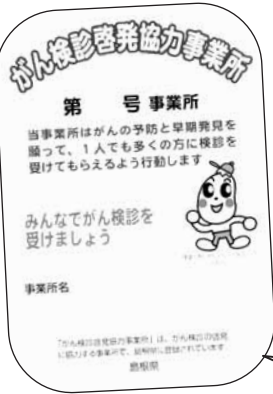 がん検診啓発協力事業所
第　号 事業所
当事業所はがんの予防と早期発見を
願って、1人でも多くの方に検診を
受けてもらえるよう行動します
みんなでがん検診を
受けましょう
事業所名
「がん検診啓発協力事業所」は、がん検診の啓発
に協力する事業所で、島根県に登録されています。
島根県